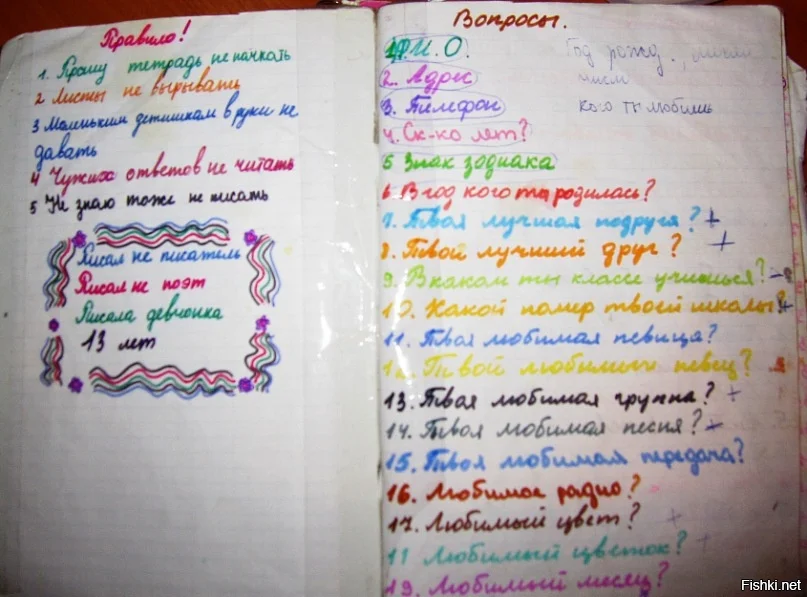 Правило!
1. Прошу тетрадь не пачкать
2 Листы не вырывать
3 Маленьким детишкам в руки не
давать
4 Чужих ответов не читать
5 Не знаю тоже не писать
Писал не писатель
Писал не поэт
Писала девчонка
13 лет
Вопросы.
1. Ф.И.О.
Год рожд.,
2. Адрес
число
3. Телефон
кого ты любишь
4. Ск-ко лет?
5 Знак зодиака
6. В год кого ты родилась?
7. Твоя лучшая подруга? +
8. Твой лучший друг? +
9. В каком ты классе учишься?
10. Какой номер твоей школы?
11. Твоя любимая певица?
12. Твой любимый певец?
13. Твоя любимая группа? +
14. Твоя любимая песня? +
15. Твоя любимая передача?
16. Любимое радио?
17. Любимый цвет? +
11 Любимый цветок? +
19. Любимый месяц?
Fishki.net